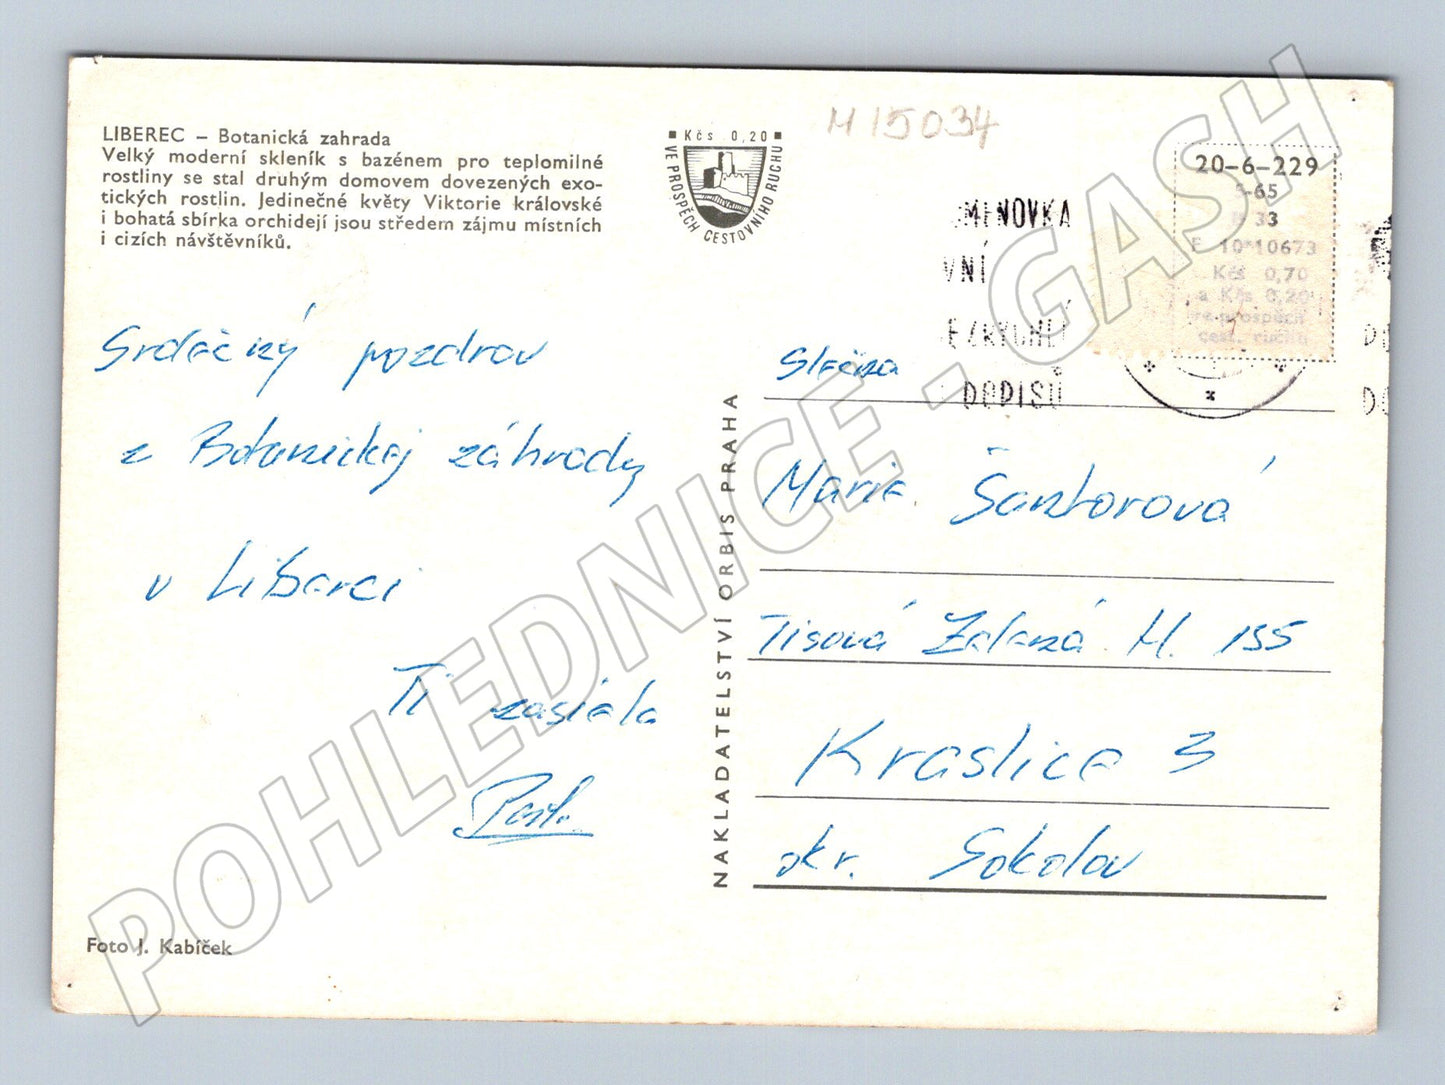 LIBEREC – Botanická zahrada
Velký moderní skleník s bazénem pro teplomilné
rostliny se stal druhým domovem dovezených exo-
tických rostlin. Jedinečné květy Viktorie královské
i bohatá sbírka orchidejí jsou středem zájmu místních
i cizích návštěvníků.
Kčs 0,20
VE PROSPĚCH CESTOVNÍHO RUCHU
M 15034
20-6-229
S-65
33
F 10*10673
Kčs 0,70
a Kčs 0,20
ve prospěch
cest. ruchu
MENOVKA
VNÍ
DODISŮ
Srdečný pozdrav
z Botanickej záhrady
v Liberci
Ti zasiela
NAKLADATELSTVÍ ORBIS PRAHA
Slečna
Marie Šantorová
Tisová Zelená H. 155
Kraslice 3
okr. Sokolov
Foto J. Kabíček
POHLEDNICE - GASH